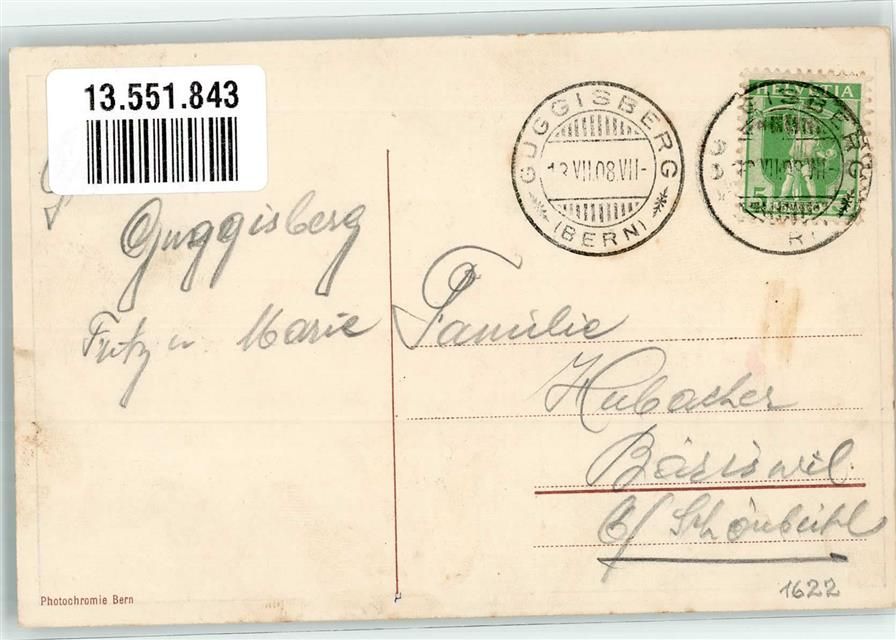 13.551.843
GUGGISBERG
13.VII.08.VII-
(BERN)
HELVETIA
5
Guggisberg
Fritz u Marie
Familie
Hubacher
Bäriswil
b/ Schönbühl
1622
Photochromie Bern